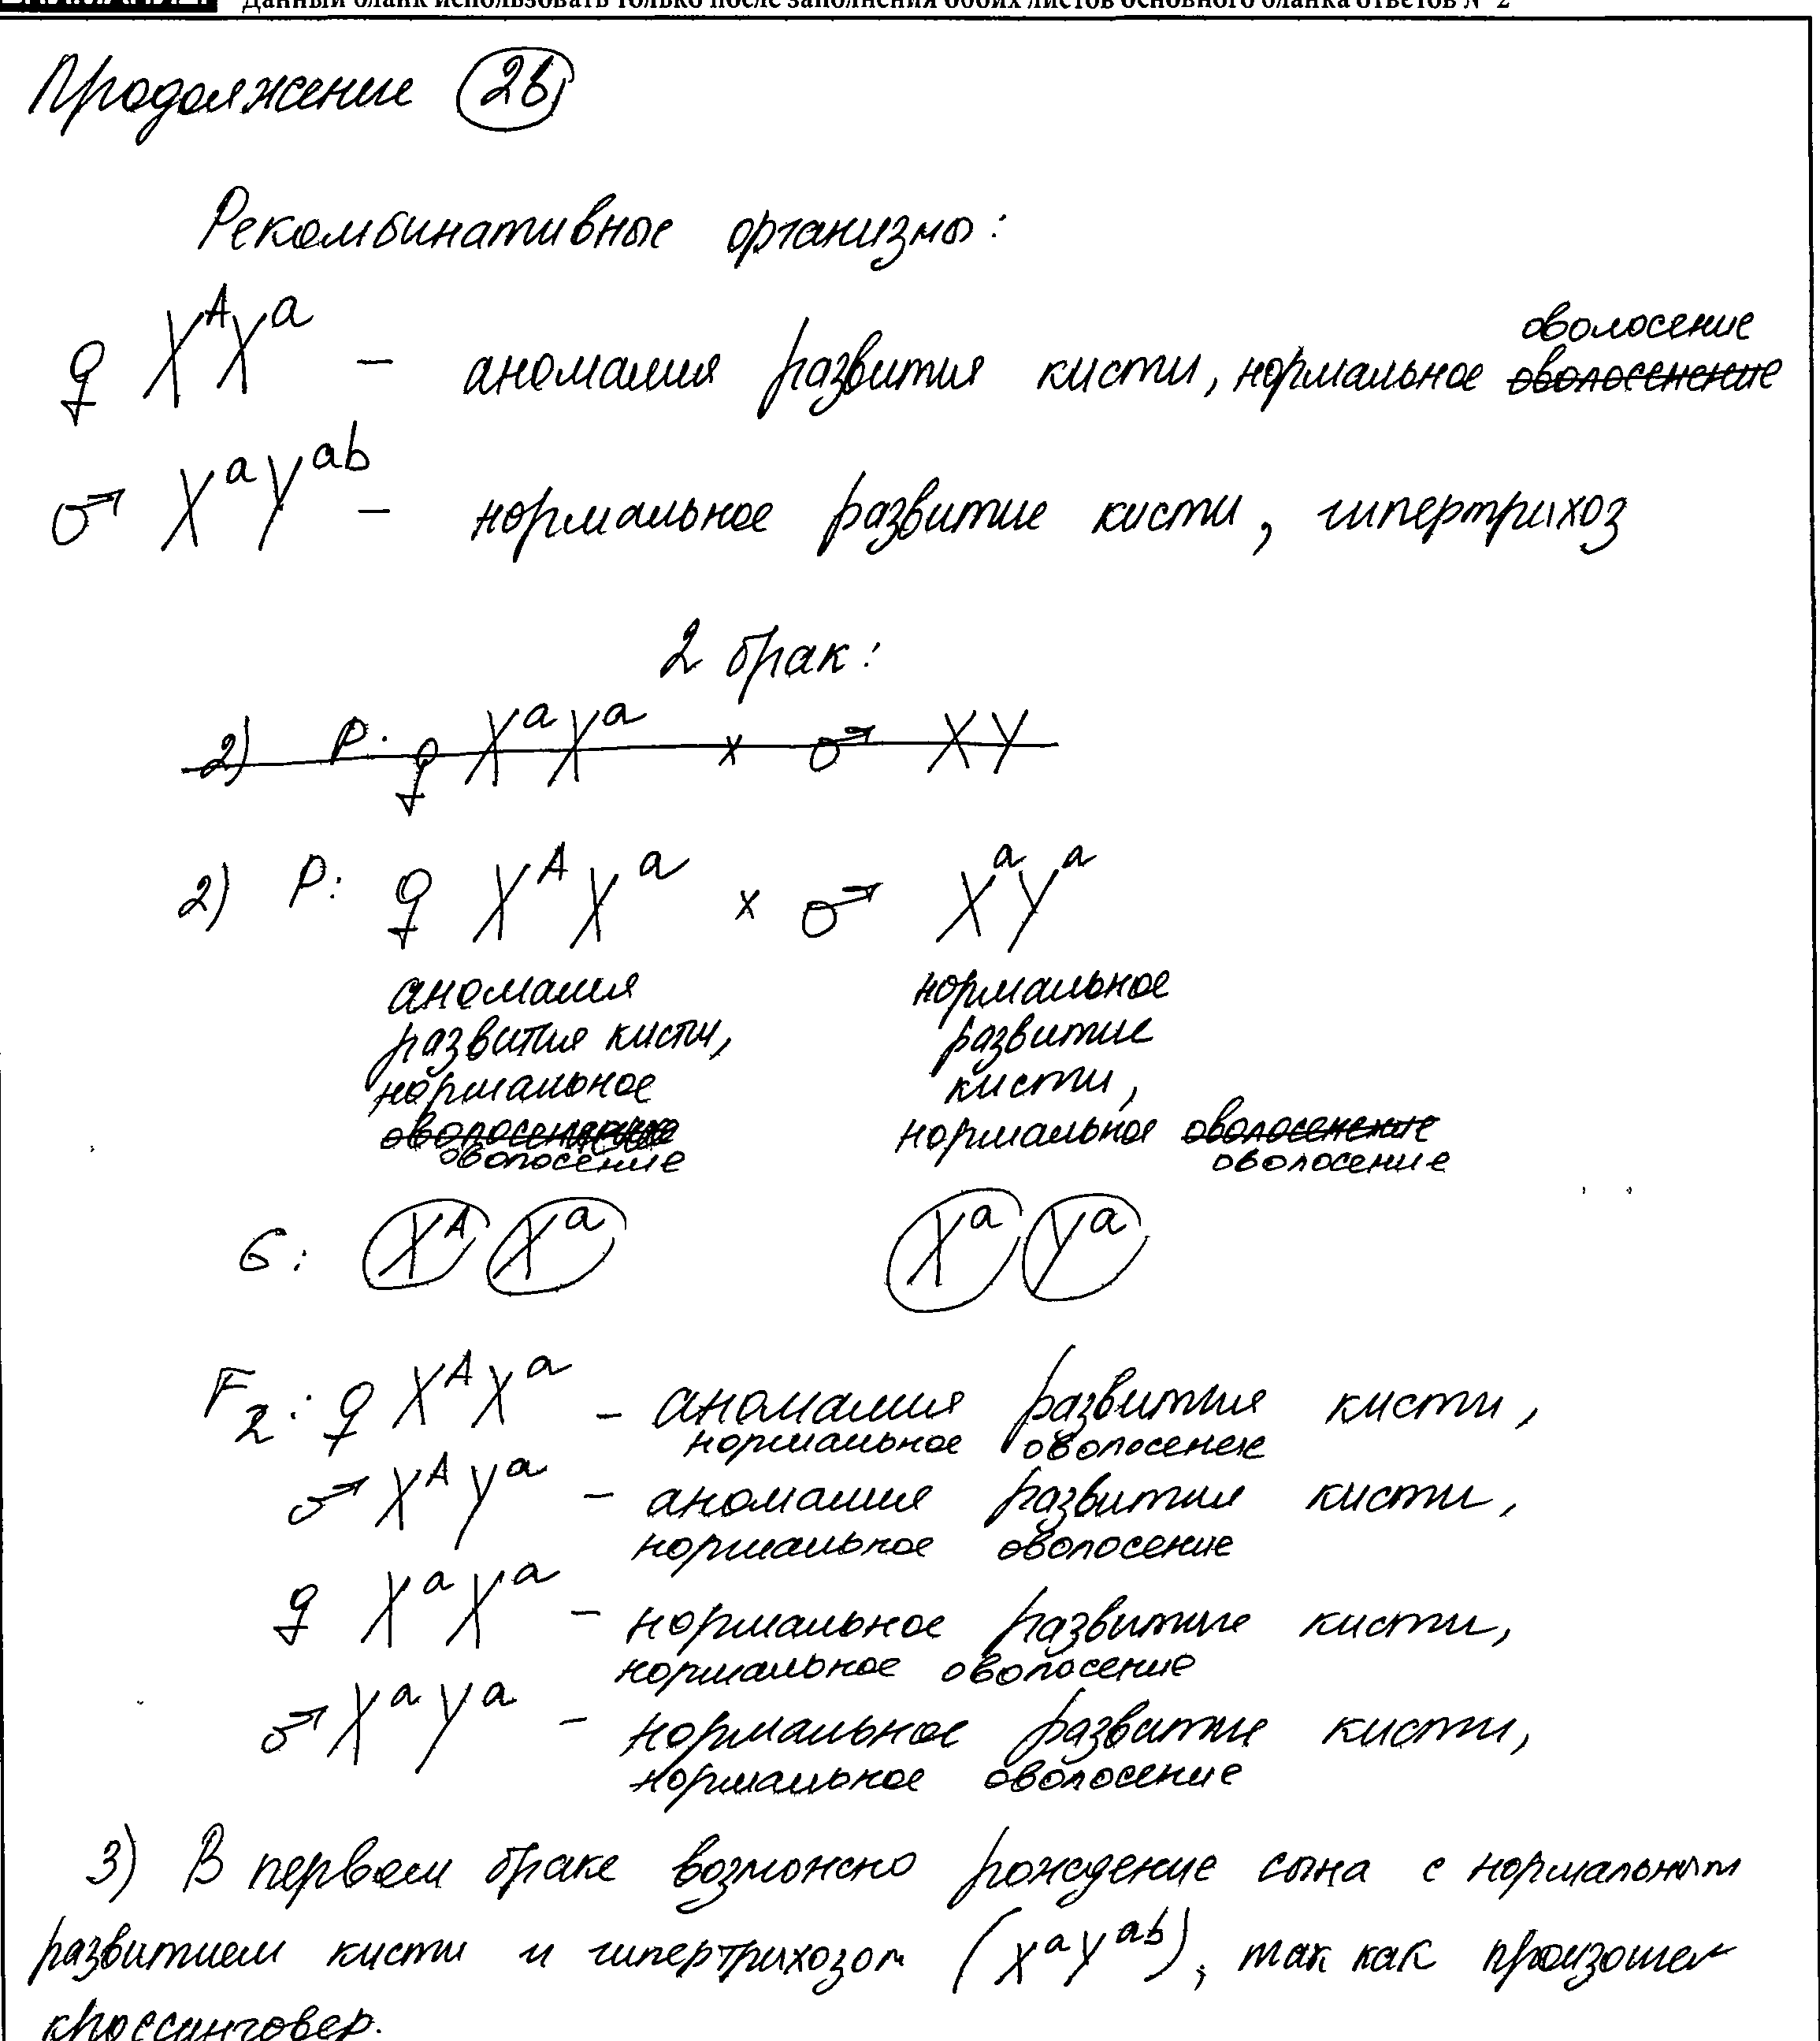 Данный бланк использовать только после заполнения обоих листов основного бланка ответов № 2
Продолжение 28
Рекомбинативные организмы:
♀ XᴬXᵃ – аномалия развития кисти, нормальное оволосение оволосенение
♂ XᵃYᵃᵇ – нормальное развитие кисти, гипертрихоз
2 брак:
2) P: ♀ XᵃXᵃ x ♂ XY
2) P: ♀ XᴬXᵃ x ♂ XᵃYᵃ
аномалия нормальное
развития кисти, развитие
нормальное кисти,
оволосение нормальное оволосенение
оволосение
G: Xᴬ Xᵃ Xᵃ Yᵃ
F₂: ♀ XᴬXᵃ – аномалия развития кисти,
нормальное оволосение
♂ XᴬYᵃ – аномалия развития кисти,
нормальное оволосение
♀ XᵃXᵃ – нормальное развитие кисти,
нормальное оволосение
♂ XᵃYᵃ – нормальное развитие кисти,
нормальное оволосение
3) В первом браке возможно рождение сына с нормальным
развитием кисти и гипертрихозом (XᵃYᵃᵇ), так как произошел
кроссинговер.